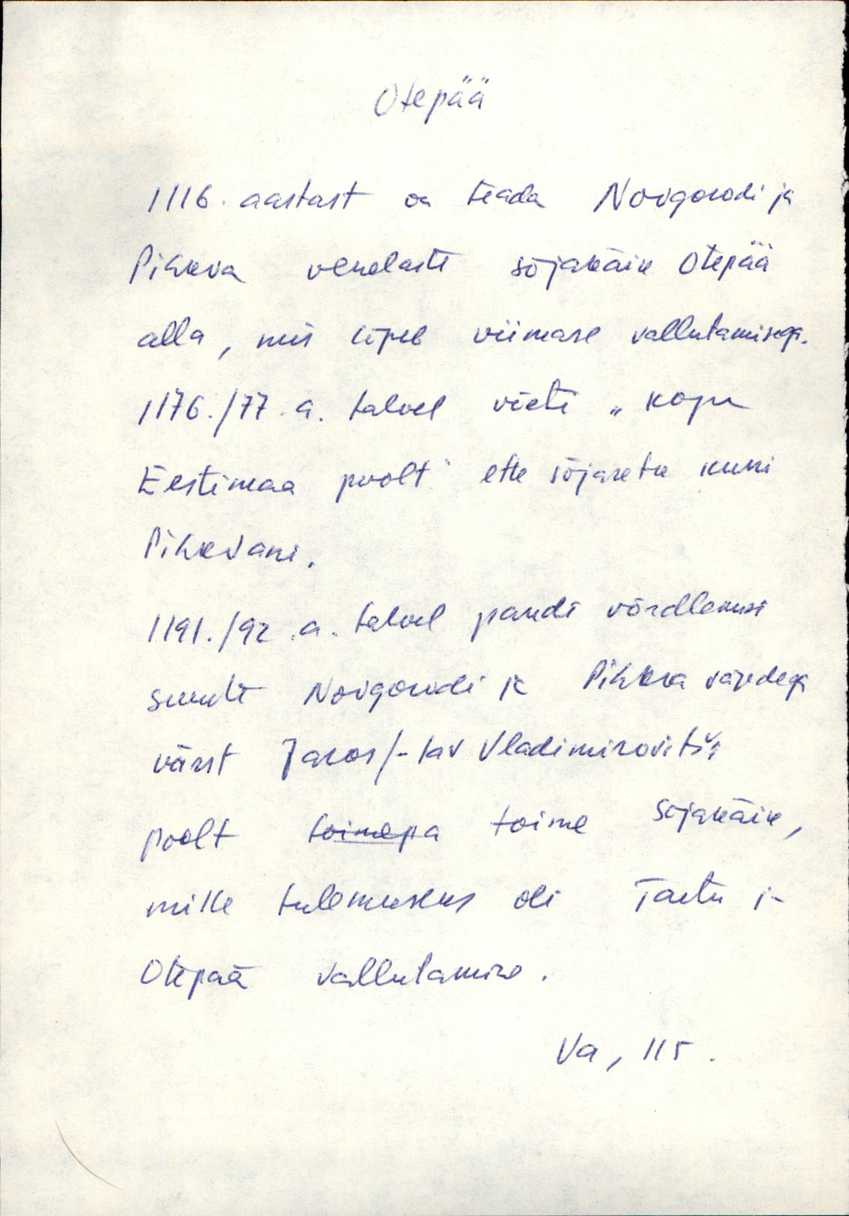 Otepää
1116. aastast on teada Novgorodi ja
Pihkva venelaste sõjakäik Otepää
alla, mis lõpeb viimase vallutamisega.
1176./77. a. talvel viidi „kogu
Eestimaa poolt" ette sõjaretk kuni
Pihkvani.
1191./92. a. talvel pandi võrdlemisi
suurte Novgorodi ja Pihkva vägedega
vürst Jaros/-lav Vladimirovitši
poolt toimepa toime sõjakäik,
mille tulemuseks oli Tartu ja
Otepää vallutamine.
Va, 115.